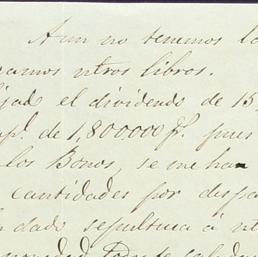 Aun no tenemos lo
ramos ntros libros.
jado el dividendo de 15
pl. de 1,800.000 f. pues
los Bonos, se me han
cantidades por despa
dado sepultura á nt